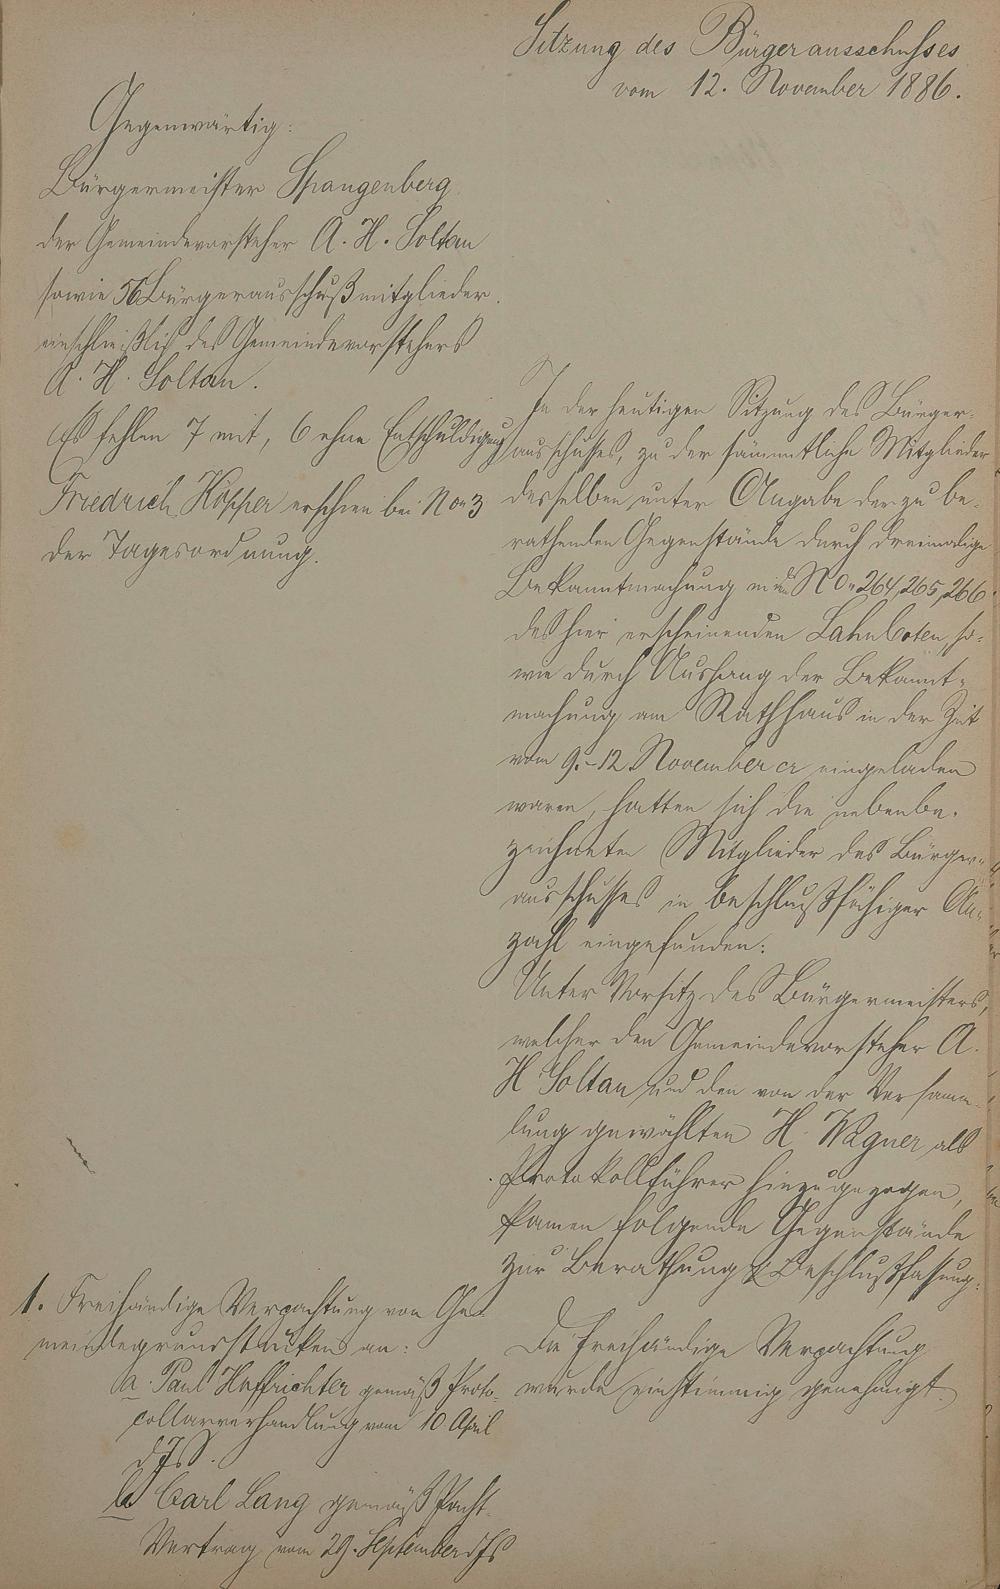 Sitzung des Bürgerausschusses
vom 12. November 1886.
Gegenwärtig:
Bürgermeister Spangenberg
der Gemeindevorsteher A. H. Soltau
sowie 56 Bürgerausschußmitglieder.
einschließlich des Gemeindevorstehers
A. H. Soltau.
Es fehlen 7 mit, 6 ohne Entschuldigung
Friedrich Höpper erschien bei Nor 3
der Tagesordnung.
In der heutigen Sitzung des Bürger-
ausschusses, zu der sämmtliche Mitglieder
desselben unter Angabe der zu be-
rathenden Gegenstände durch dreimalige
Bekanntmachung in No 264, 265, 266
des hier erscheinenden Lahnboten, so-
wie durch Aushang der Bekannt-
machung am Rathhaus in der Zeit
vom 9.-12. November cr eingeladen
waren, hatten sich die nebenbe-
zeichneten Mitglieder des Bürger-
ausschusses in beschlußfähiger An-
zahl eingefunden:
Unter Vorsitz des Bürgermeisters,
welcher den Gemeindevorsteher A.
H. Soltau und den von der Versamm-
lung gewählten H. Wagner als
Protokollführer hinzugezogen,
kamen folgende Gegenstände
zur Berathung & Beschlußfassung:
1. Freihändige Verpachtung von Ge-
meindegrundstücken an:
a. Paul Haffrichter gemäß Proto-
collarverhandlung vom 10. April
d Js.
b Carl Lang gemäß Pacht-
Vertrag vom 29. September d Js
Die freihändige Verpachtung
wurde einstimmig genehmigt.